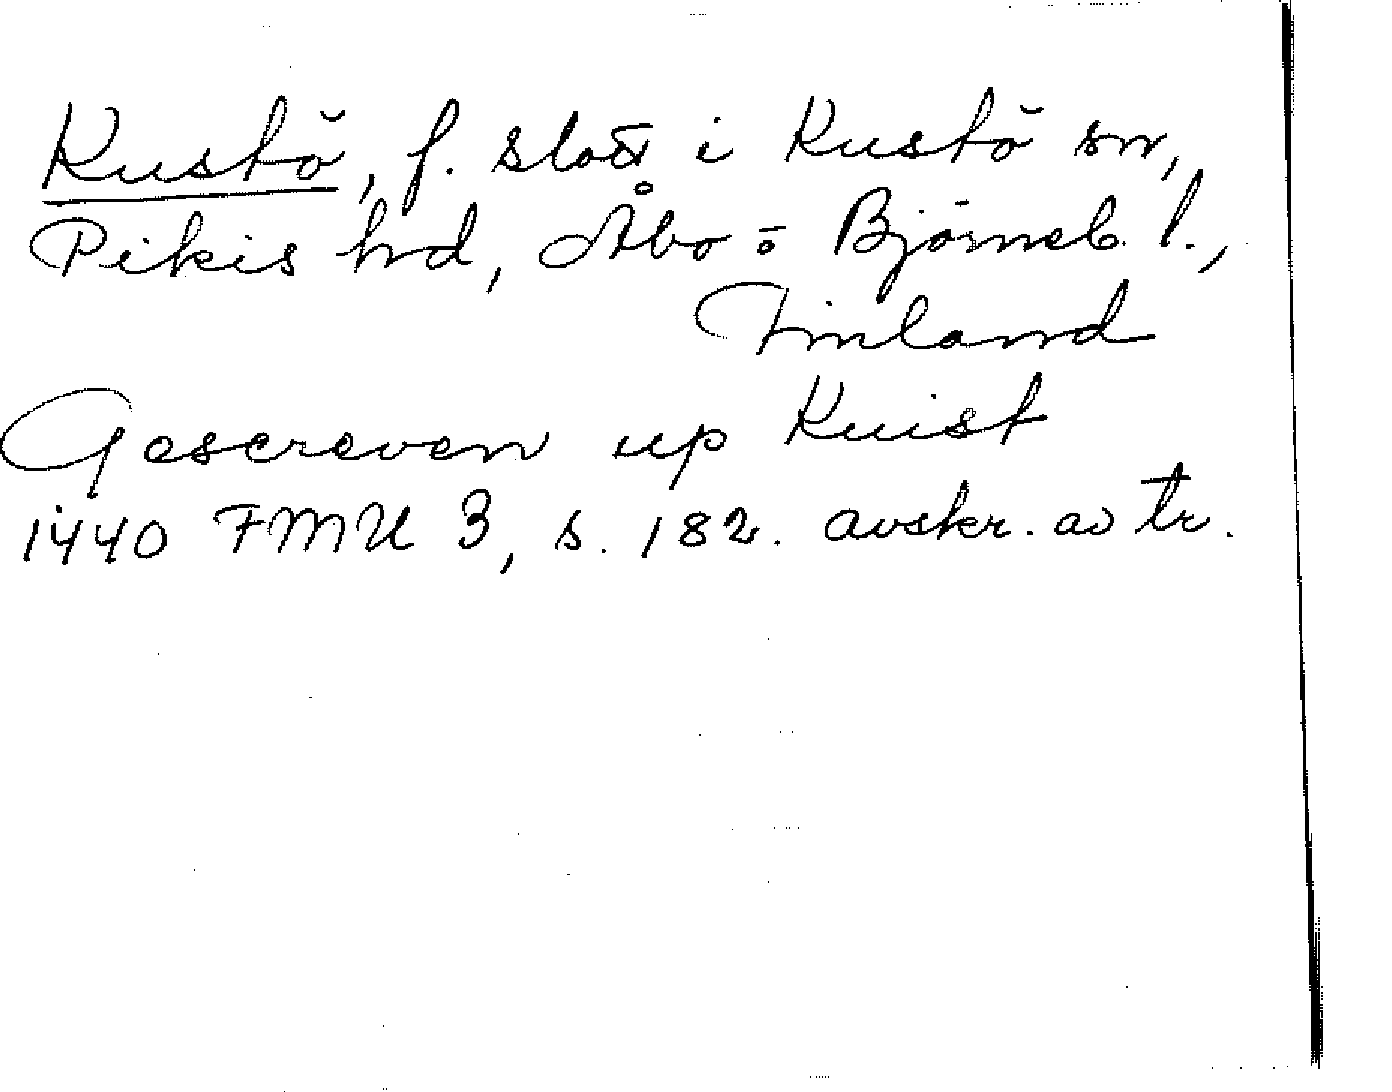 Kustö, f. slott i Kustö sn,
Pikis hd, Åbo o Björneb. l.,
Finland
Gescreven up Kuist
1440 FMU 3, s. 182. avskr. av tr.